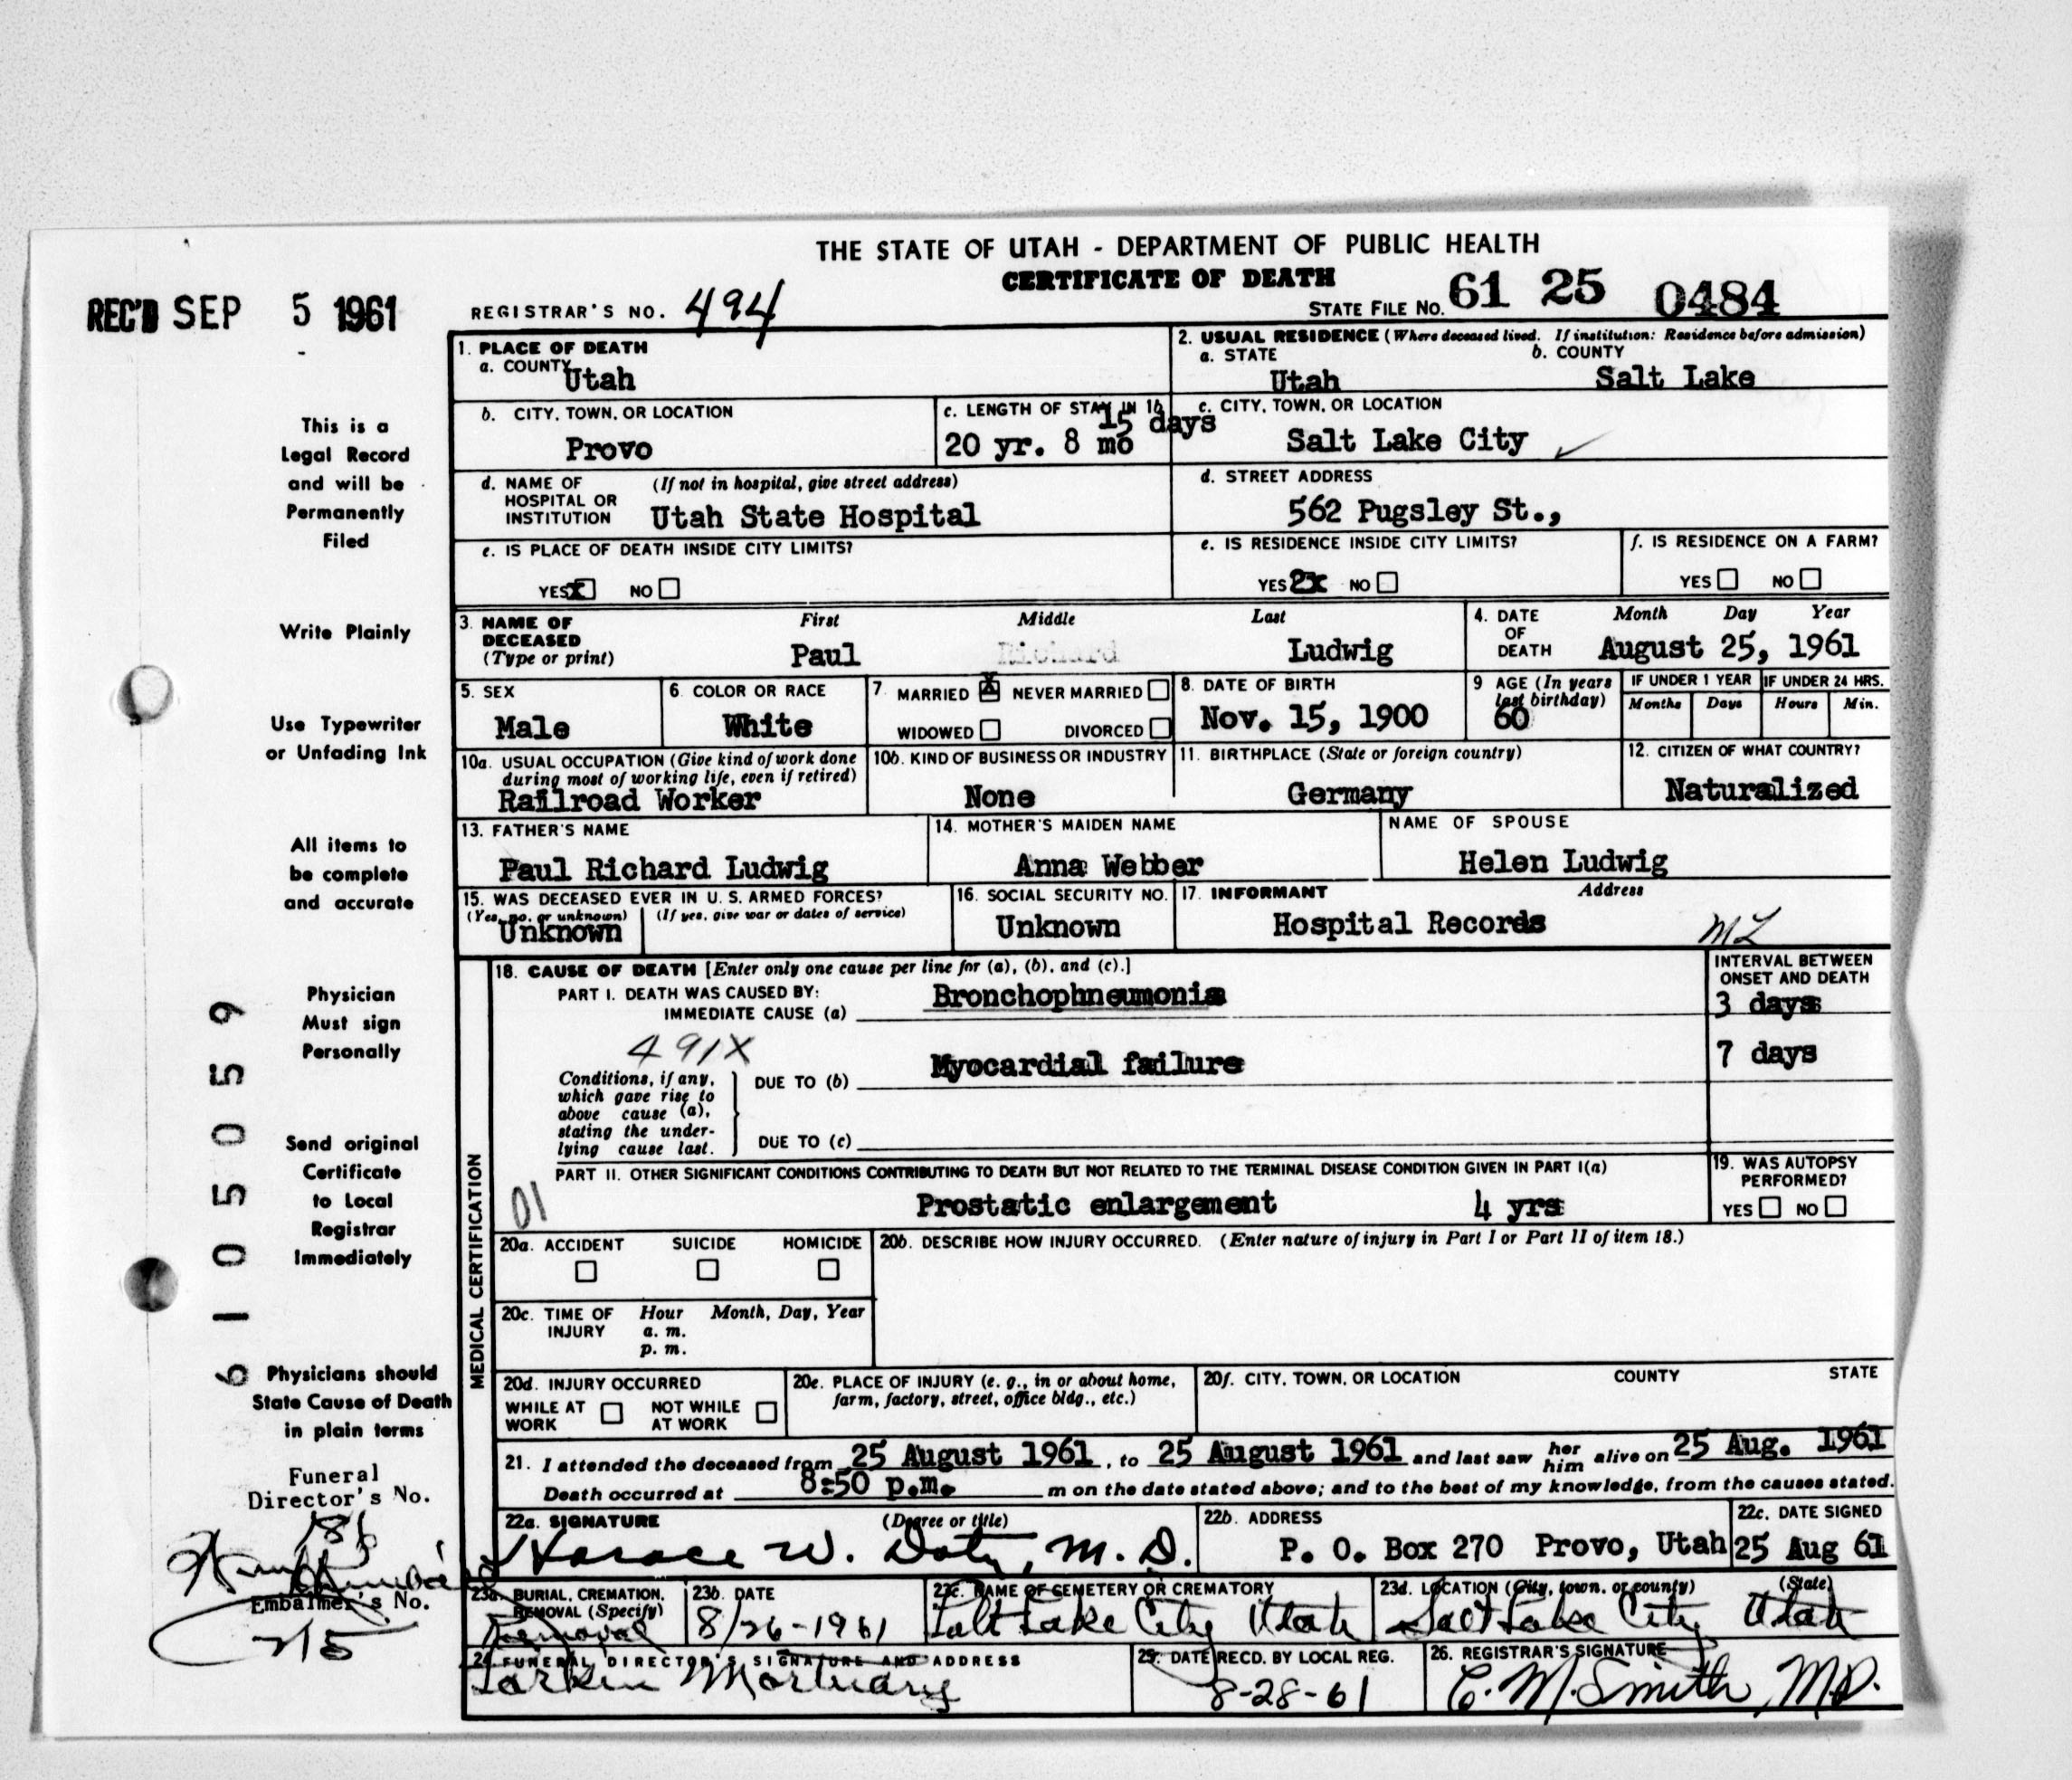 THE STATE OF UTAH - DEPARTMENT OF PUBLIC HEALTH
CERTIFICATE OF DEATH
REC'D SEP 5 1961
REGISTRAR'S NO. 494
STATE FILE NO. 61 25 0484
This is a
Legal Record
and will be
Permanently
Filed
Write Plainly
Use Typewriter
or Unfading Ink
All items to
be complete
and accurate
Physician
Must sign
Personally
Send original
Certificate
to Local
Registrar
Immediately
Physicians should
State Cause of Death
in plain terms
Funeral
Director's No.
186
Embalmer's No.
215
6105059
1. PLACE OF DEATH
a. COUNTY
Utah
2. USUAL RESIDENCE (Where deceased lived. If institution: Residence before admission)
a. STATE b. COUNTY
Utah Salt Lake
b. CITY, TOWN, OR LOCATION
Provo
c. LENGTH OF STAY IN 1b
15 days
20 yr. 8 mo
c. CITY, TOWN, OR LOCATION
Salt Lake City
d. NAME OF (If not in hospital, give street address)
HOSPITAL OR
INSTITUTION Utah State Hospital
d. STREET ADDRESS
562 Pugsley St.,
e. IS PLACE OF DEATH INSIDE CITY LIMITS?
YES X NO
e. IS RESIDENCE INSIDE CITY LIMITS?
YES 2x NO
f. IS RESIDENCE ON A FARM?
YES NO
3. NAME OF First Middle Last
DECEASED
(Type or print) Paul Richard Ludwig
4. DATE Month Day Year
OF
DEATH August 25, 1961
5. SEX
Male
6. COLOR OR RACE
White
7. MARRIED X NEVER MARRIED
WIDOWED DIVORCED
8. DATE OF BIRTH
Nov. 15, 1900
9 AGE (In years
last birthday)
60
IF UNDER 1 YEAR IF UNDER 24 HRS.
Months Days Hours Min.
10a. USUAL OCCUPATION (Give kind of work done
during most of working life, even if retired)
Railroad Worker
10b. KIND OF BUSINESS OR INDUSTRY
None
11. BIRTHPLACE (State or foreign country)
Germany
12. CITIZEN OF WHAT COUNTRY?
Naturalized
13. FATHER'S NAME
Paul Richard Ludwig
14. MOTHER'S MAIDEN NAME
Anna Webber
NAME OF SPOUSE
Helen Ludwig
15. WAS DECEASED EVER IN U. S. ARMED FORCES?
(Yes, no, or unknown) (If yes, give war or dates of service)
Unknown
16. SOCIAL SECURITY NO.
Unknown
17. INFORMANT Address
Hospital Records ML
MEDICAL CERTIFICATION
18. CAUSE OF DEATH [Enter only one cause per line for (a), (b), and (c).]
PART I. DEATH WAS CAUSED BY:
IMMEDIATE CAUSE (a) Bronchophneumonia
INTERVAL BETWEEN
ONSET AND DEATH
3 days
491X
Conditions, if any,
which gave rise to
above cause (a),
stating the under-
lying cause last.
DUE TO (b) Myocardial failure
7 days
DUE TO (c)
PART II. OTHER SIGNIFICANT CONDITIONS CONTRIBUTING TO DEATH BUT NOT RELATED TO THE TERMINAL DISEASE CONDITION GIVEN IN PART I(a)
01 Prostatic enlargement 4 yrs
19. WAS AUTOPSY
PERFORMED?
YES NO
20a. ACCIDENT SUICIDE HOMICIDE
20b. DESCRIBE HOW INJURY OCCURRED. (Enter nature of injury in Part I or Part II of item 18.)
20c. TIME OF Hour Month, Day, Year
INJURY a. m.
p. m.
20d. INJURY OCCURRED
WHILE AT NOT WHILE
WORK AT WORK
20e. PLACE OF INJURY (e. g., in or about home,
farm, factory, street, office bldg., etc.)
20f. CITY, TOWN, OR LOCATION COUNTY STATE
21. I attended the deceased from 25 August 1961, to 25 August 1961 and last saw her him alive on 25 Aug. 1961
Death occurred at 8:50 p.m. m on the date stated above; and to the best of my knowledge, from the causes stated.
22a. SIGNATURE (Degree or title)
Horace W. Doty, M. D.
22b. ADDRESS
P. O. Box 270 Provo, Utah
22c. DATE SIGNED
25 Aug 61
23a. BURIAL, CREMATION,
REMOVAL (Specify)
Removal
23b. DATE
8/26-1961
23c. NAME OF CEMETERY OR CREMATORY
Salt Lake City Utah
23d. LOCATION (City, town, or county) (State)
Salt Lake City Utah
24 FUNERAL DIRECTOR'S SIGNATURE AND ADDRESS
Larkin Mortuary
25. DATE RECD. BY LOCAL REG.
8-28-61
26. REGISTRAR'S SIGNATURE
C. M. Smith, M.D.